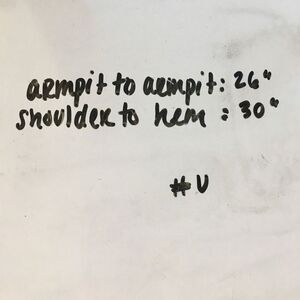 armpit to armpit: 26"
shoulder to hem : 30"
# U